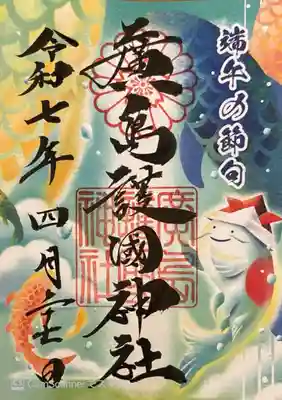 端午の節句
廣島護國神社
廣島
護國
神社
令和七年 四月 日
CamScanner